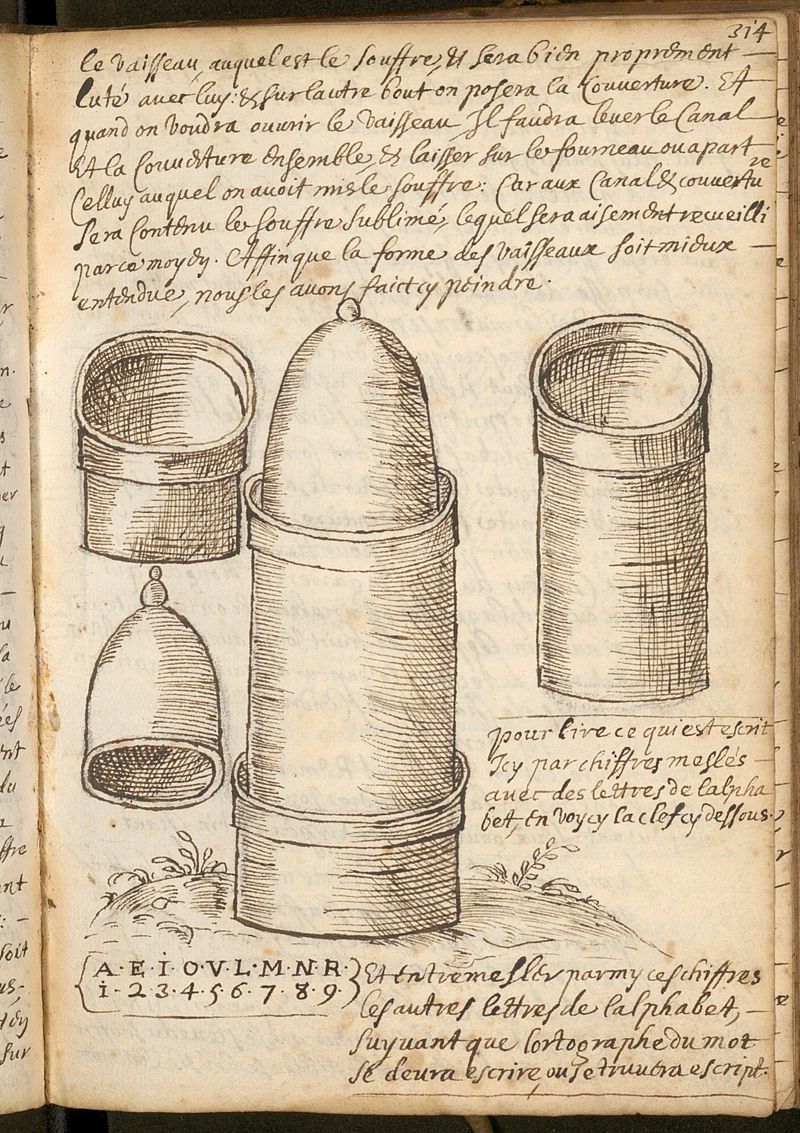 314
le vaisseau, auquel est le souffre, & sera bien proprement
luté avec luy: & sur lautre bout on posera la Couverture. Et
quand on voudra ouvrir le vaisseau, Il faudra lever le Canal
Et la Couverture ensemble, & laisser sur le fourneau ou a part
Celluy auquel on avoit mis le souffre: Car aux Canal & couvertu re
sera Contenu le souffre sublimé, lequel sera aisement recueilli
par ce moyen. Affin que la forme des vaisseaux soit mieux
entendue, nous les avons faict cy peindre.
pour lire ce qui est escrit
Icy par chiffres meslés
avec des lettres de lalpha
bet, en voycy la clef cy dessous.
A·E·I·O·V·L·M·N·R·
1·2·3·4·5·6·7·8·9·
Et entremesler parmy ces chiffres
les autres lettres de lalphabet,
suyvant que lortographe du mot
se devra escrire, ou se truvera escript.